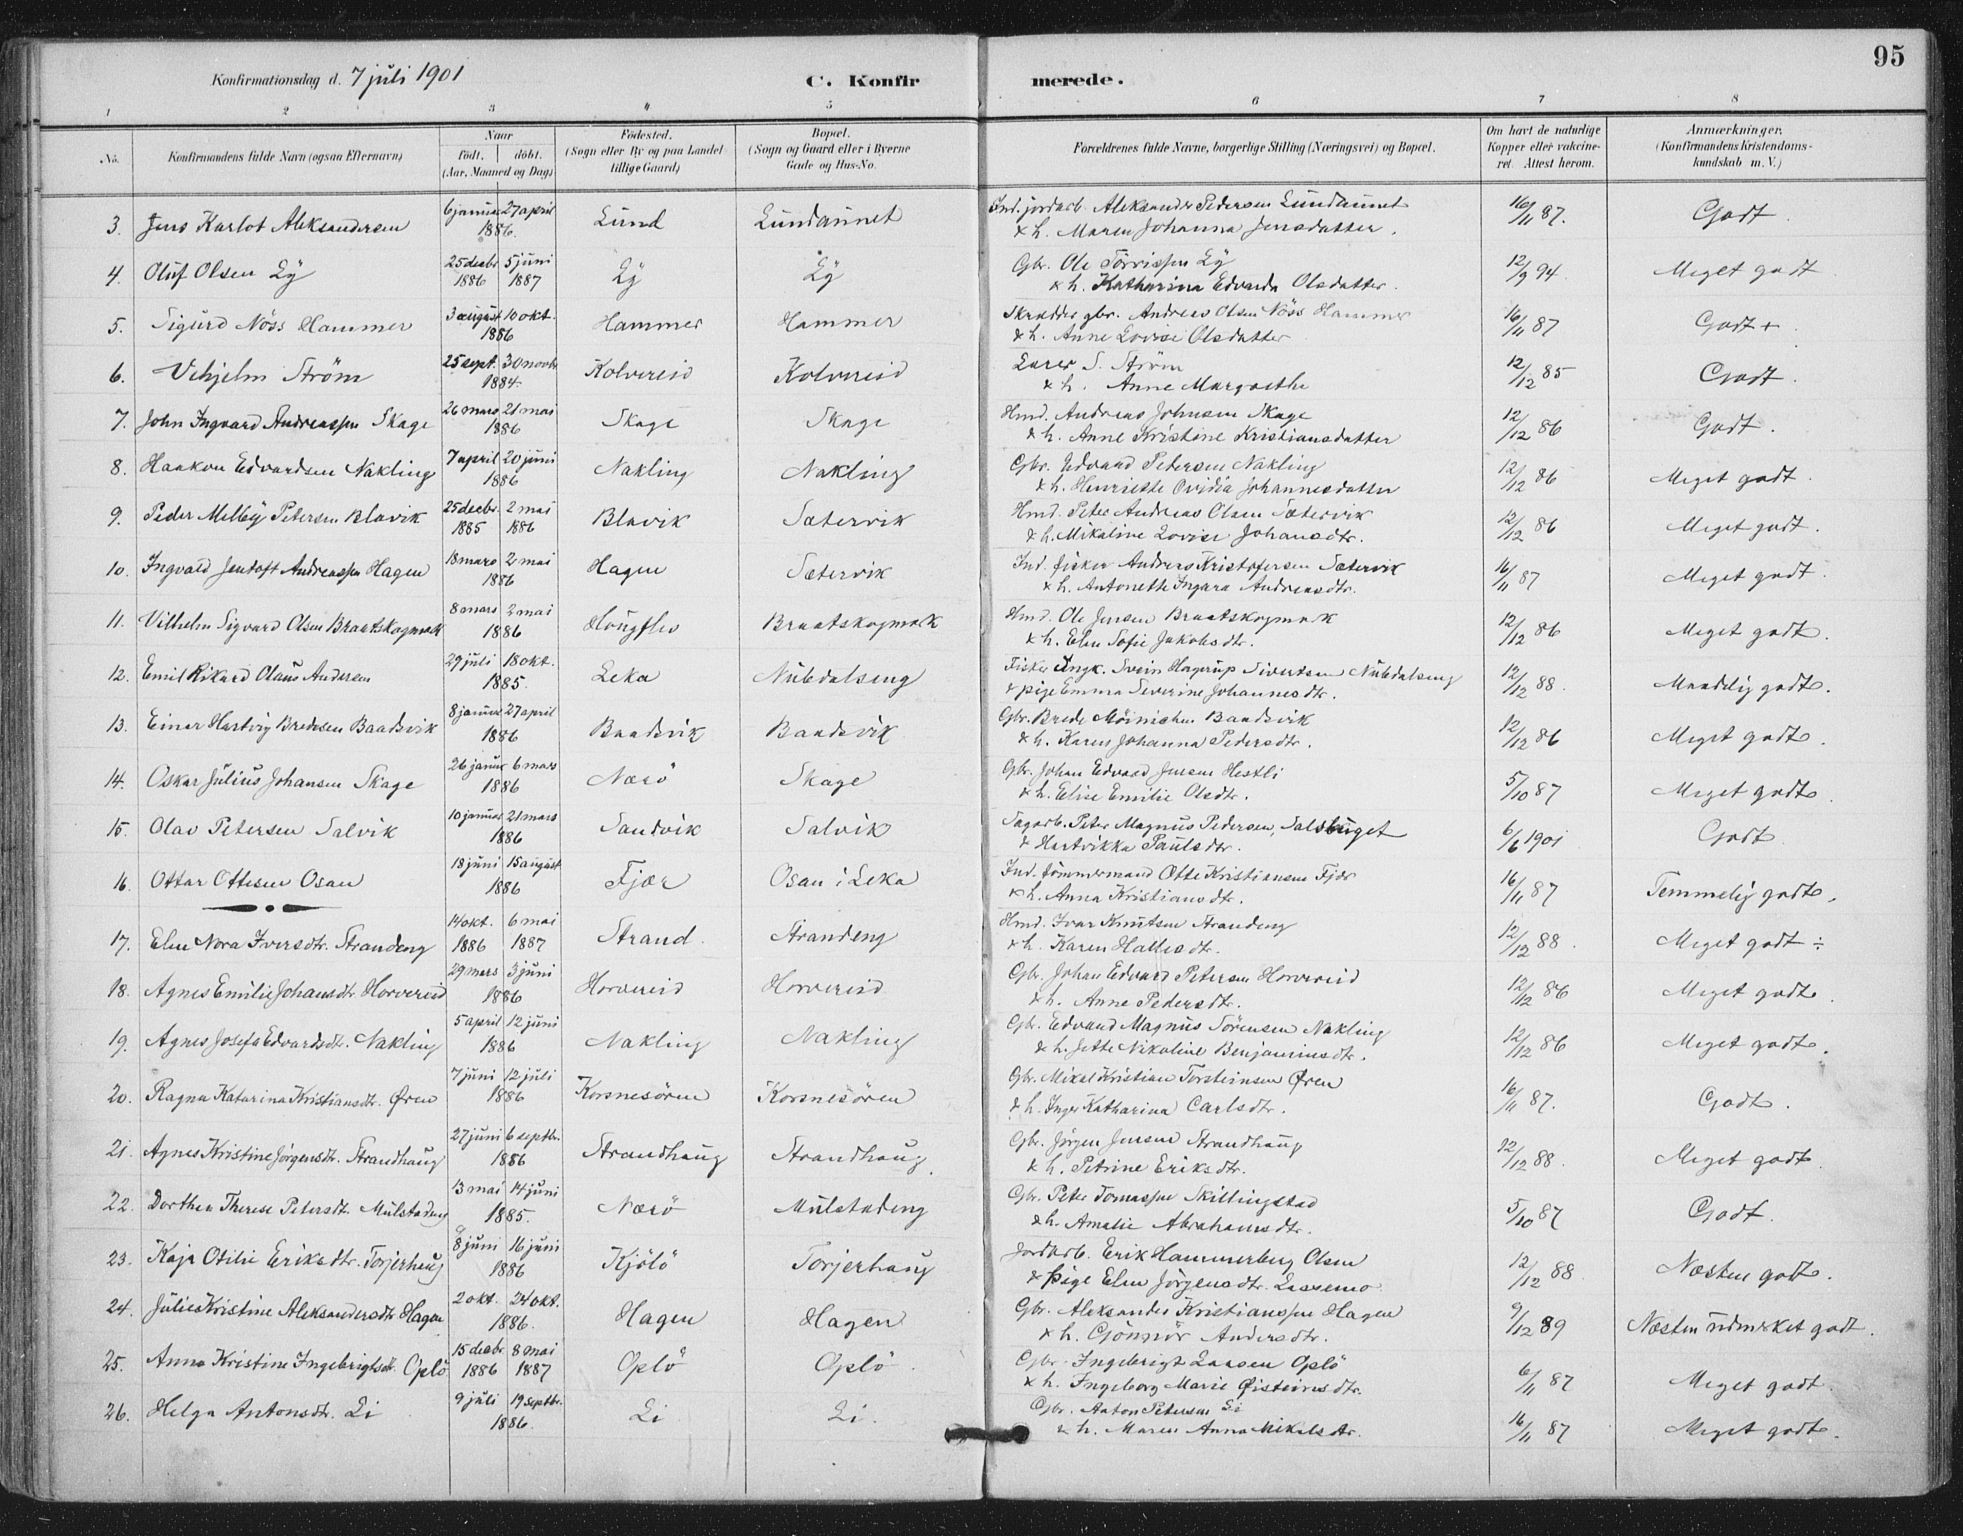 95
Konfirmationsdag d. 7 juli 1901
C. Konfirmerede.
1 2 3 4 5 6 7 8
No. Konfirmandens fulde Navn (ogsaa Efternavn) Naar födt. döbt. (Aar, Maaned og Dag) Födested. (Sogn eller By og paa Landet tillige Gaard) Bopæl. (Sogn og Gaard eller i Byerne Gade og Hus-No. Forældrenes fulde Navne, borgerlige Stilling (Næringsvei) og Bopæl. Om havt de naturlige Kopper eller vaccineret. Attest herom. Anmærkninger. (Konfirmandens Kristendomskundskab m. V.)
3. Jens Karlot Aleksandersen 6 januar 27 april 1886. Lund Lundaunet Ind. jordarb. Aleksander Pedersen Lundaunet & h. Maren Johanna Jensdatter. 16/11 87. Godt.
4. Oluf Olsen Ly 25 decbr 1886 5 juni 1887 Ly Ly Gbr. Ole Törrissen Ly & h. Katharina Edvarda Olsdatter. 12/9 94. Meget godt.
5. Sigurd Nöss Hammer 3 august 10 okt. 1886 Hammer Hammer Skrædder gbr. Andreas Olsen Nöss Hammer & h. Anne Lovise Olsdatter 16/11 87 Godt +.
6. Vihjelm Ström 25 sept. 30 novbr 1884 Kolvereid Kolvereid Lærer S. Ström & h. Anne Margrethe 12/12 85 Godt.
7. John Ingvard Andreassen Skage 26 mars 21 mai 1886 Skage Skage Hmd. Andreas Johnsen Skage & h. Anne Kristine Kristiansdatter 12/12 86 Godt.
8. Haakon Edvardsen Nakling 7 april 20 juni 1886 Nakling Nakling Gbr. Edvard Petersen Nakling & h. Henriette Ovidia Johannesdatter 12/12 86 Meget godt.
9. Peder Melby Petersen Blavik 25 decbr. 1885 2 mai 1886 Blavik Sætervik Hmd. Peter Andreas Olsen Sætervik & h. Mikaline Lovise Johansdtr. 12/12 86 Meget godt.
10. Ingvald Jentoft Andreassen Hagen 18 mars 2 mai 1886 Hagen Sætervik Ind. fisker Andreas Kristofersen Sætervik & h. Antonette Ingara Andreasdtr. 16/11 87 Meget godt.
11. Vilhelm Sigvard Olsen Braatskogmok 8 mars 2 mai 1886 Braatskogmok Hmd. Ole Jensen Braatskogmok & h. Elen Sofie Jakobsdtr. 12/12 86 Meget godt.
12. Emil Rikard Olaus Andersen 29 juli 18 okt. 1885. Leka Nubdalseng Fisker ungk. Svein Hagerup Sivertsen Nubdalseng & pige Emma Severine Johannesdtr. 12/12 88. Maadelig godt.
13. Einar Hartvig Bredesen Baadsvik 8 januar 27 april 1886 Baadsvik Baadsvik Gbr. Brede Möinichen Baadsvik & h. Karen Johanna Pedersdtr. 12/12 86 Meget godt.
14. Oskar Julius Johansen Skage 26 januar 6 mars 1886 Nærö Skage Gbr. Johan Edvard Jensen Hestli & h. Elise Emilie Olsdtr. 5/10 87 Meget godt.
15. Olav Petersen Salvik 10 januar 21 mars 1886 Sandvik Salvik Sagarb. Peter Magnus Pedersen, Salsbruget & Hartvikka Paulsdtr. 6/6 1901 Godt
16. Ottar Ottesen Osan 18 juni 15 august 1886 Fjær Osan i Leka Ind. tömmermand Otte Kristiansen Fjær & h. Anna Kristiansdtr. 16/11 87 Temmelig godt.
17. Elen Nora Iversdtr. Strandeng 14 okt. 1886 6 mai 1887 Strand. Strandeng Hmd. Ivar Knutsen Strandeng & h. Karen Hallesdtr. 12/12 88. Meget godt ÷
18. Agnes Emilie Johansdtr Horvereid 29 mars 3 juni 1886 Horvereid Horvereid Gbr. Johan Edvard Petersen Horvereid & h. Anne Pedersdtr. 12/12 86 Meget godt.
19. Agnes Josefa Edvardsdtr. Nakling 5 april 12 juni 1886 Nakling Nakling Gbr. Edvard Magnus Sörensen Nakling & h. Jette Nikoline Benjaminsdtr. 12/12 86 Meget godt.
20. Ragna Katarina Kristiansdtr. Øren 7 juni 12 juli 1886 Korsnesören Korsnesören Gbr. Mikal Kristian Torsteinsen Øren & h. Inger Katharina Carlsdtr. 16/11 87. Godt.
21. Agnes Kristine Jørgensdtr. Strandhaug 27 juni 6 septbr. 1886 Strandhaug Strandhaug. Gbr. Jörgen Jensen Strandhaug & h. Petrine Eriksdtr. 12/12 88. Meget godt
22. Dorthea Therese Petersdtr. Mulstadeng 13 mai 14 juni 1885. Nærö Mulstadeng Gbr. Peter Tomassen Skillingstad & h. Amalie Abrahamsdtr. 5/10 87 Godt.
23. Kaja Otilie Eriksdtr. Torjerhaug 8 juni 16 juni 1886 Kjölö Torjerhaug Jordarb. Erik Hammerberg Olsen & pige Elen Jörgensdtr. Lassemo 12/12 88 Næsten godt.
24. Julie Kristine Aleksandersdtr Hagen 2 okt. 24 okt. 1886. Hagen Hagen Gbr. Aleksander Kristianssen Hagen & h. Gönnör Andersdtr. 9/12 89 Næsten udmerket godt.
25. Anna Kristine Ingebrigtsdtr. Oplö 15 decbr 1886 8 mai 1887 Oplö Oplö. Gbr. Ingebrigt Laasen Oplö & h. Ingeborg Marie Øisteinsdtr. 6/11 87 Meget godt.
26. Helga Antonsdtr. Li 9 juli 19 septbr. 1886. Li Li. Gbr. Anton Petersen Li & h. Maren Anna Mikalsdtr. 16/11 87 Meget godt.